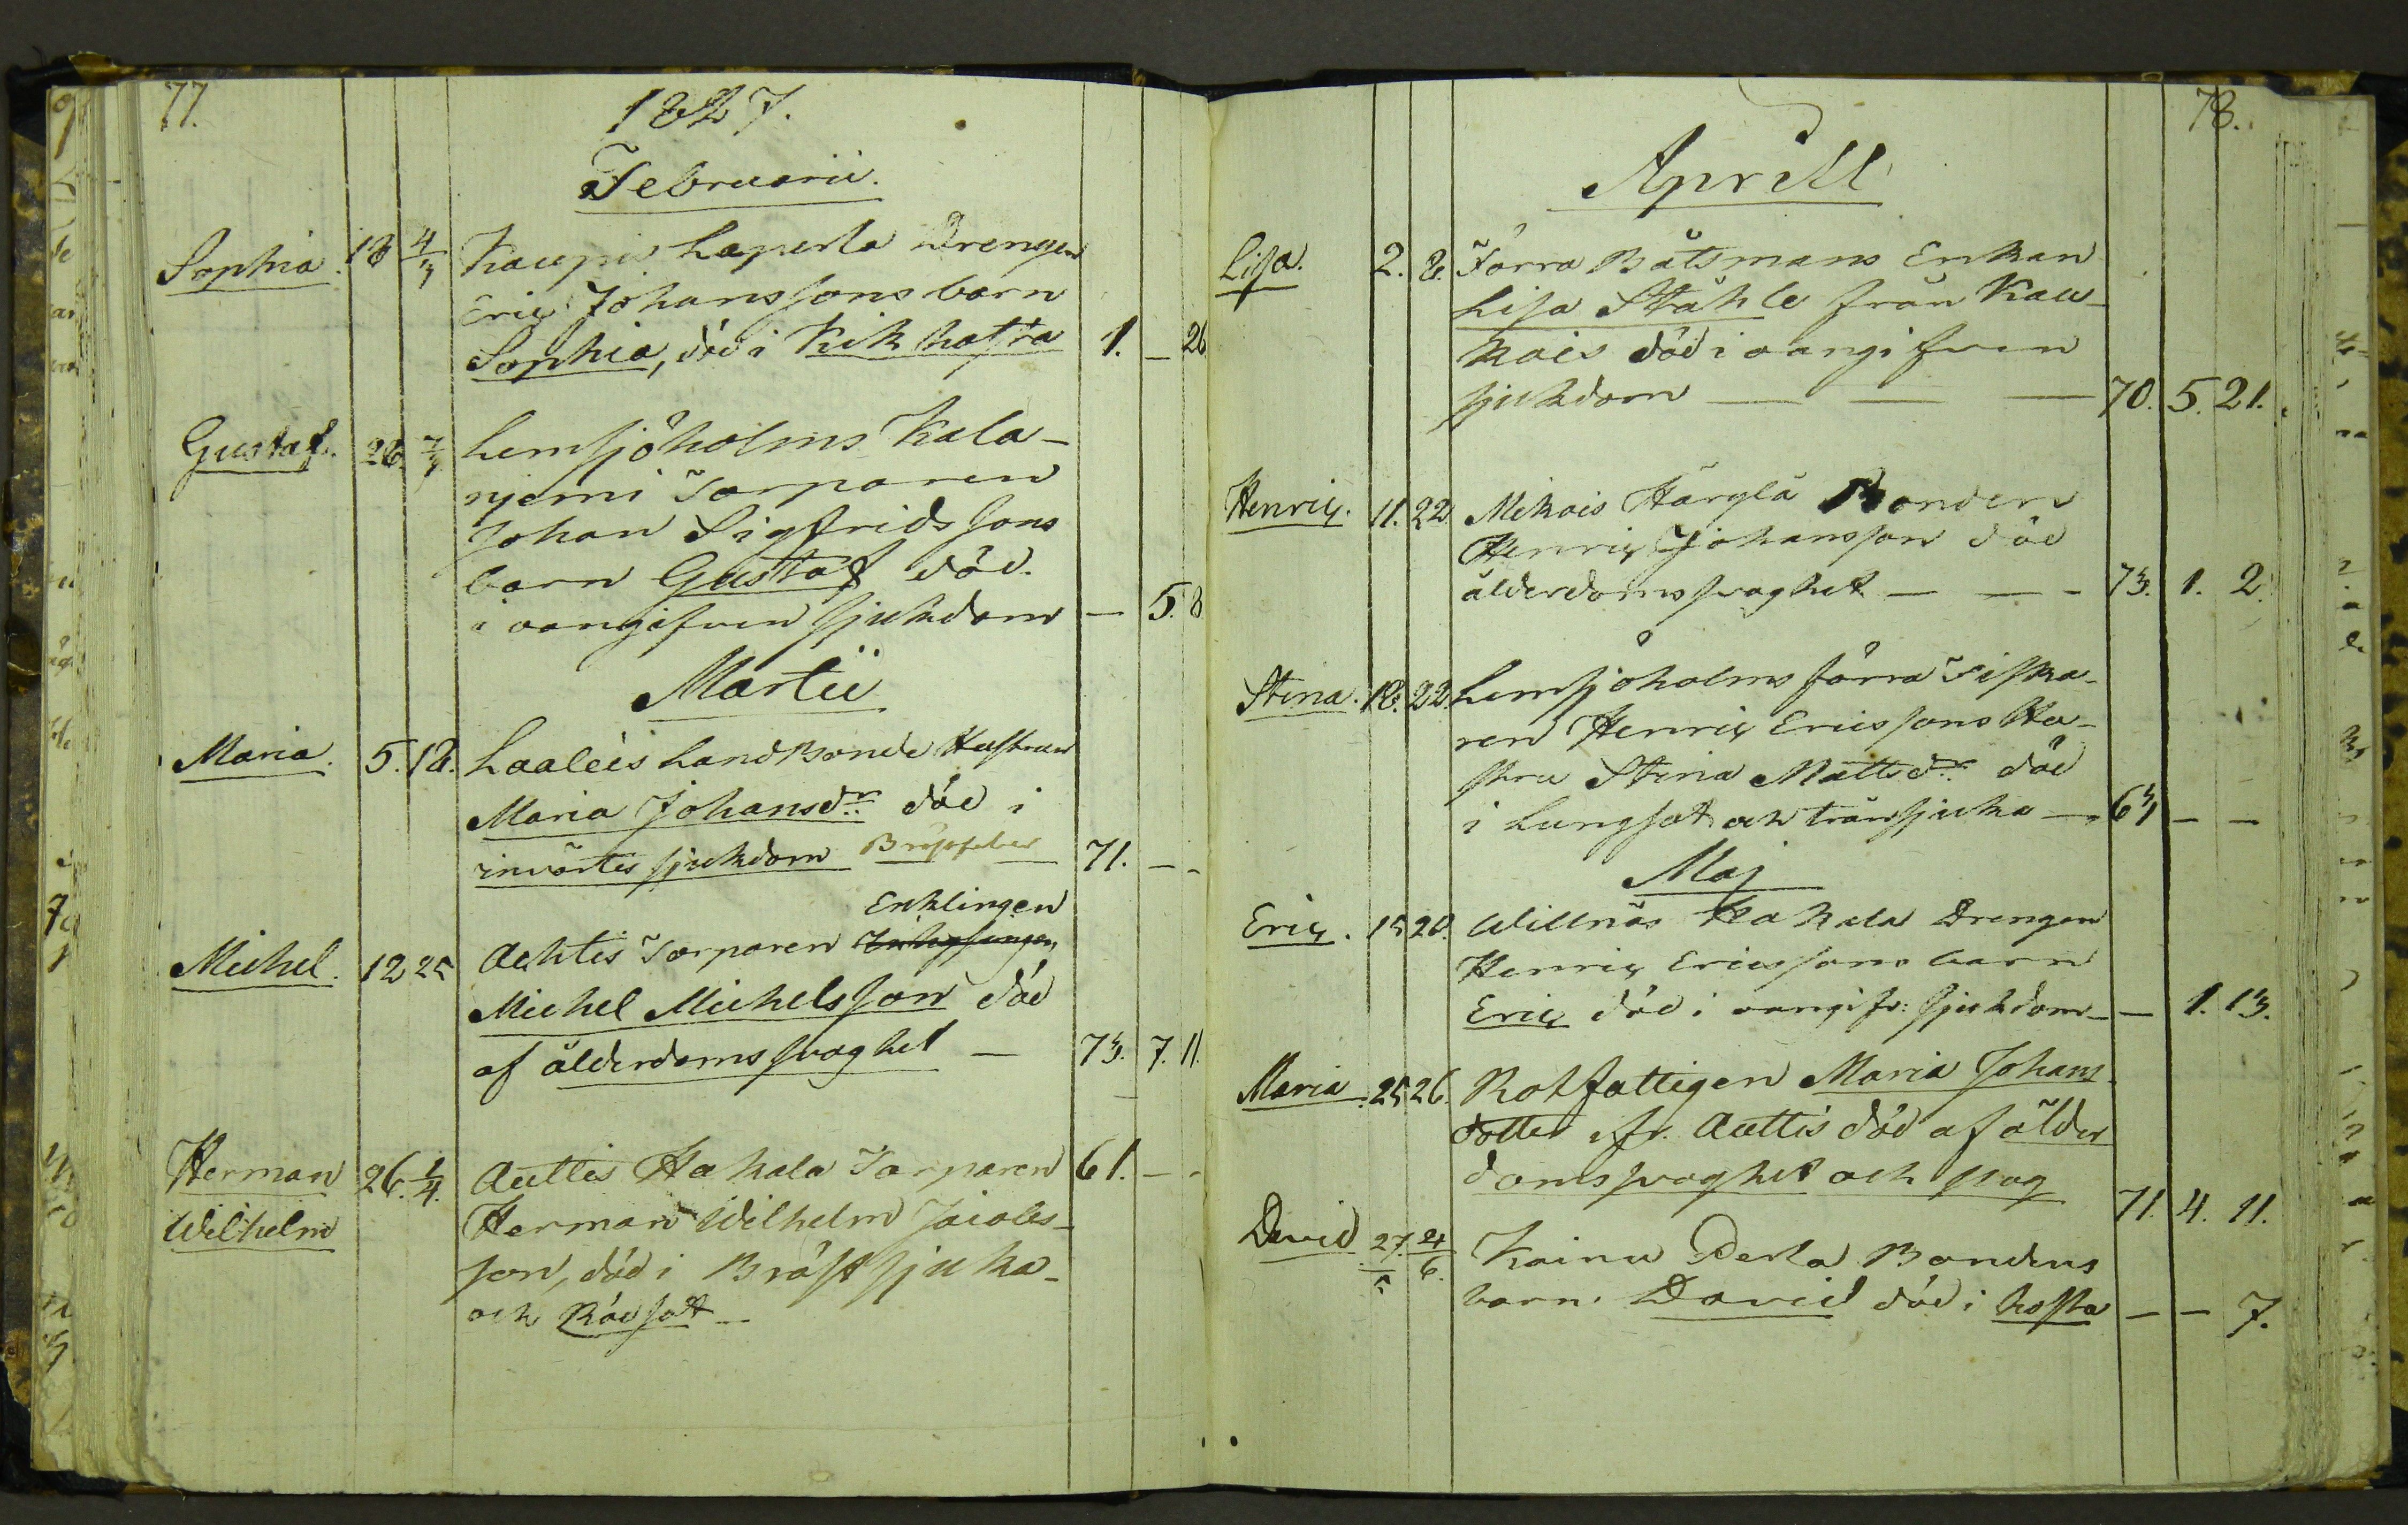 77.
1827.
Februarii.
Sophia. 18 4/3 Kaupis Laperla Drengen
Eric Johanssons barn
Sophia, död i Kikhosta 1. – 26
Gustaf. 26. 7/3 Lemsjöholms Kala-
njemi Torparen
Johan Sigfridssons
barn Gustaf död.
i oangifven sjukdom – 5. 8
Martii
Maria. 5. 18. Laaleis Landbonde Hustrun
Maria Johansdr. död i
invärtes sjukdom Bröstfeber 71. – -
Enklingen
Michel. 12 25 Ahtis Torparen
Michel Michelsson död
af ålderdomssvaghet – 73. 7. 11
Herman 26. 1/4. Auttis Hakala Torparen 61. – -
Wilhelm
Herman Wilhelm Jacobs-
son, död i Bröstsjuka-
och Rödsot –
78.
Aprill
Lisa. 2. 8. Förra Båtsmans Enkan
Lisa Ståhle från Kau-
kois död i oangifven
sjukdom — — — 70. 5. 21.
Henric. 11. 22. Mikois Härglä Bonden
Henric Johansson död
ålderdomssvaghet – – - 73. 1. 2.
Stina. 18. 22. Lemsjöholms förra Fiska-
ren Henric Ericssons Hu-
stru Stina Mattsdr. död
i Lungsot och tränsjuka – 63 – –
Maj
Eric. 15 20. Willnäs Hakala Drengen
Henric Ericssons barn
Eric död i oangifv: sjukdom – – 1. 13.
Maria. 25 26. Rotfattigen Maria Johans
dotter ifr. Auttis död af ålder
domssvaghet och svag
71. 4. 11.
David 27./5 4/6. Kainu Perla Bondens
barn. David död i hosta – – 7.